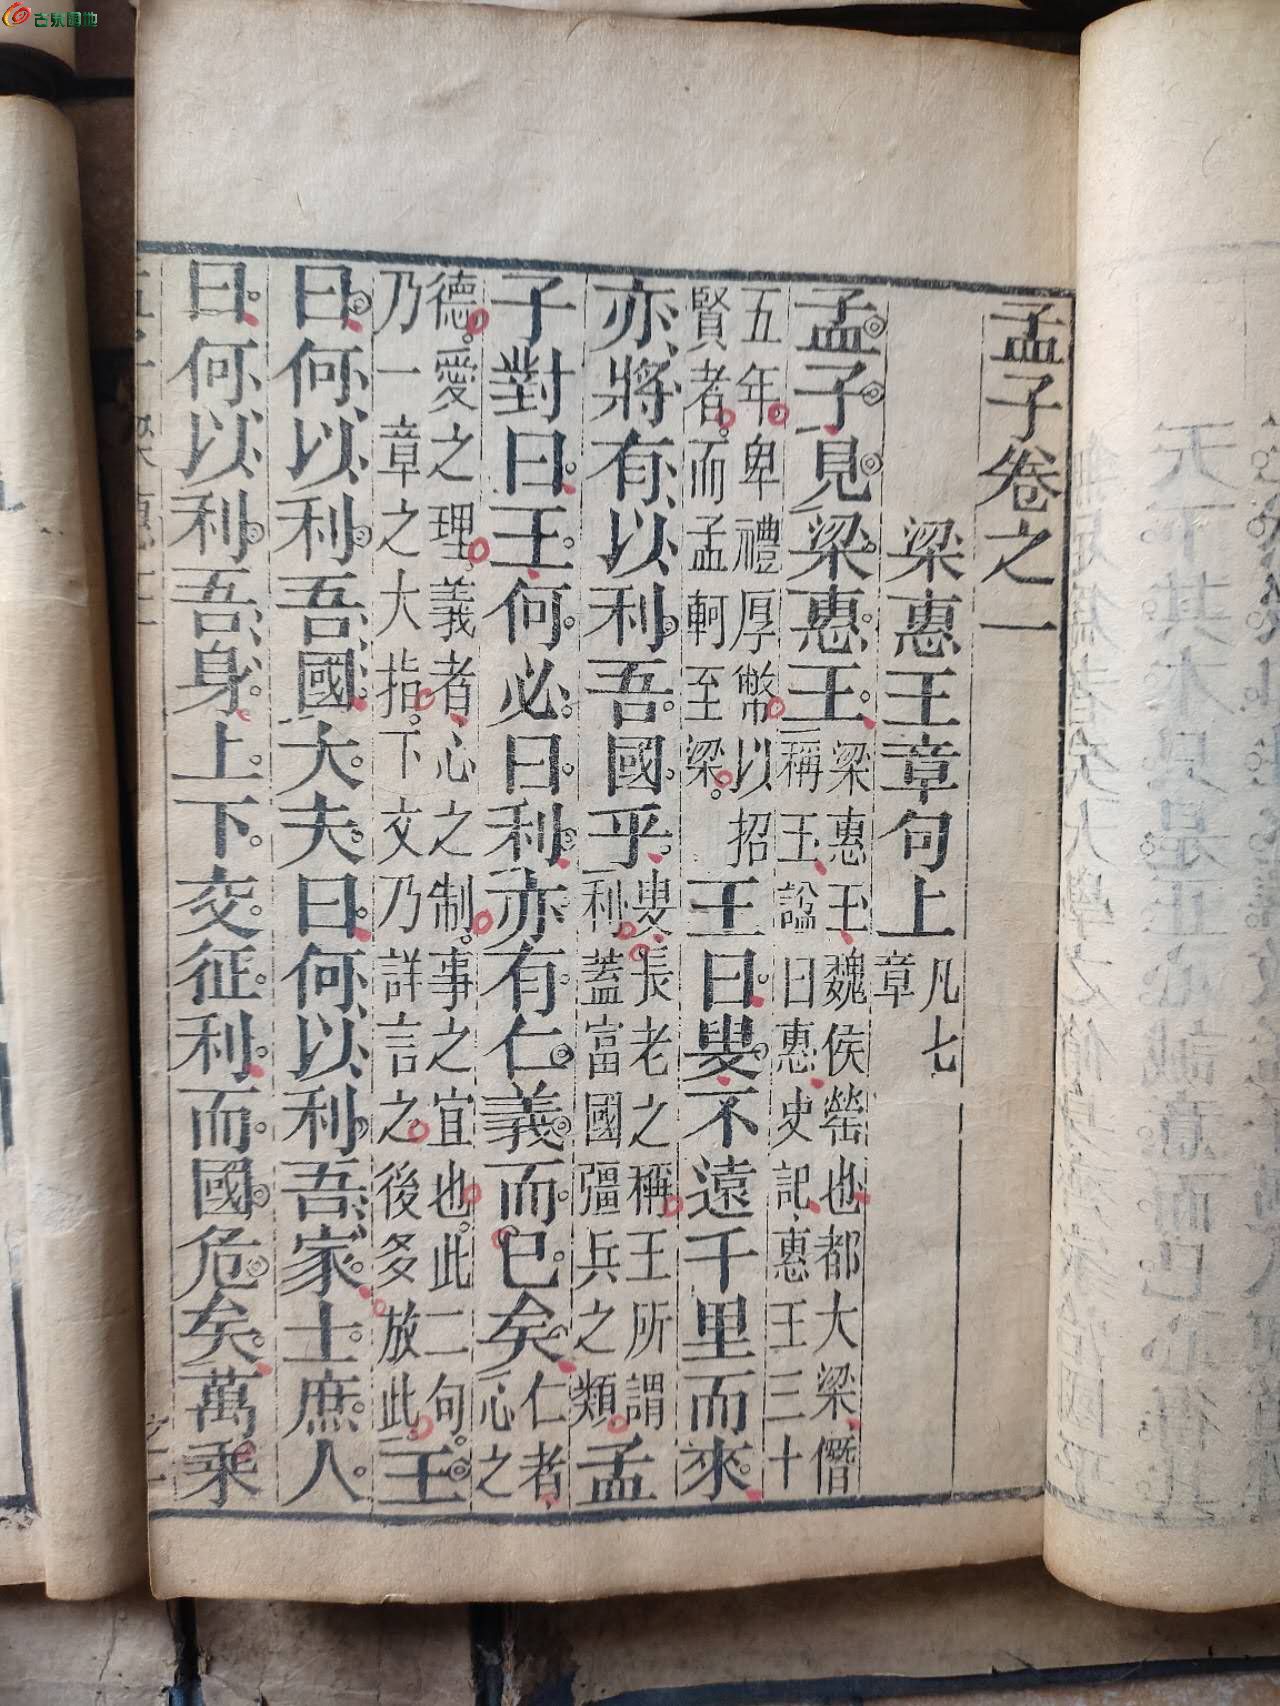 孟子卷之一
梁惠王章句上凡七章
孟子見梁惠王梁惠王魏侯罃也都大梁僭
稱王諡曰惠史記惠王三十
五年卑禮厚幣以招
賢者而孟軻至梁王曰叟不遠千里而來
亦將有以利吾國乎叟長老之稱王所謂
利蓋富國彊兵之類孟
子對曰王何必曰利亦有仁義而已矣仁者
心之
德愛之理義者心之制事之宜也此二句
乃一章之大指下文乃詳言之後多放此王
曰何以利吾國大夫曰何以利吾家士庶人
曰何以利吾身上下交征利而國危矣萬乘
古泉園地